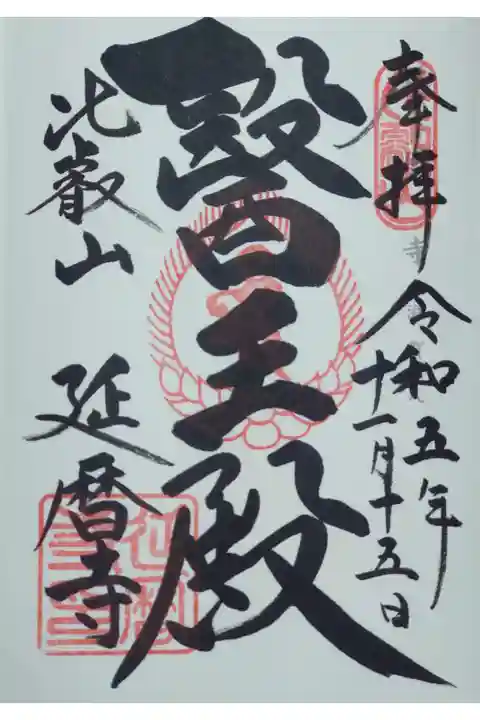 奉拝
令和五年
十一月十五日
醫王殿
比叡山
延暦寺